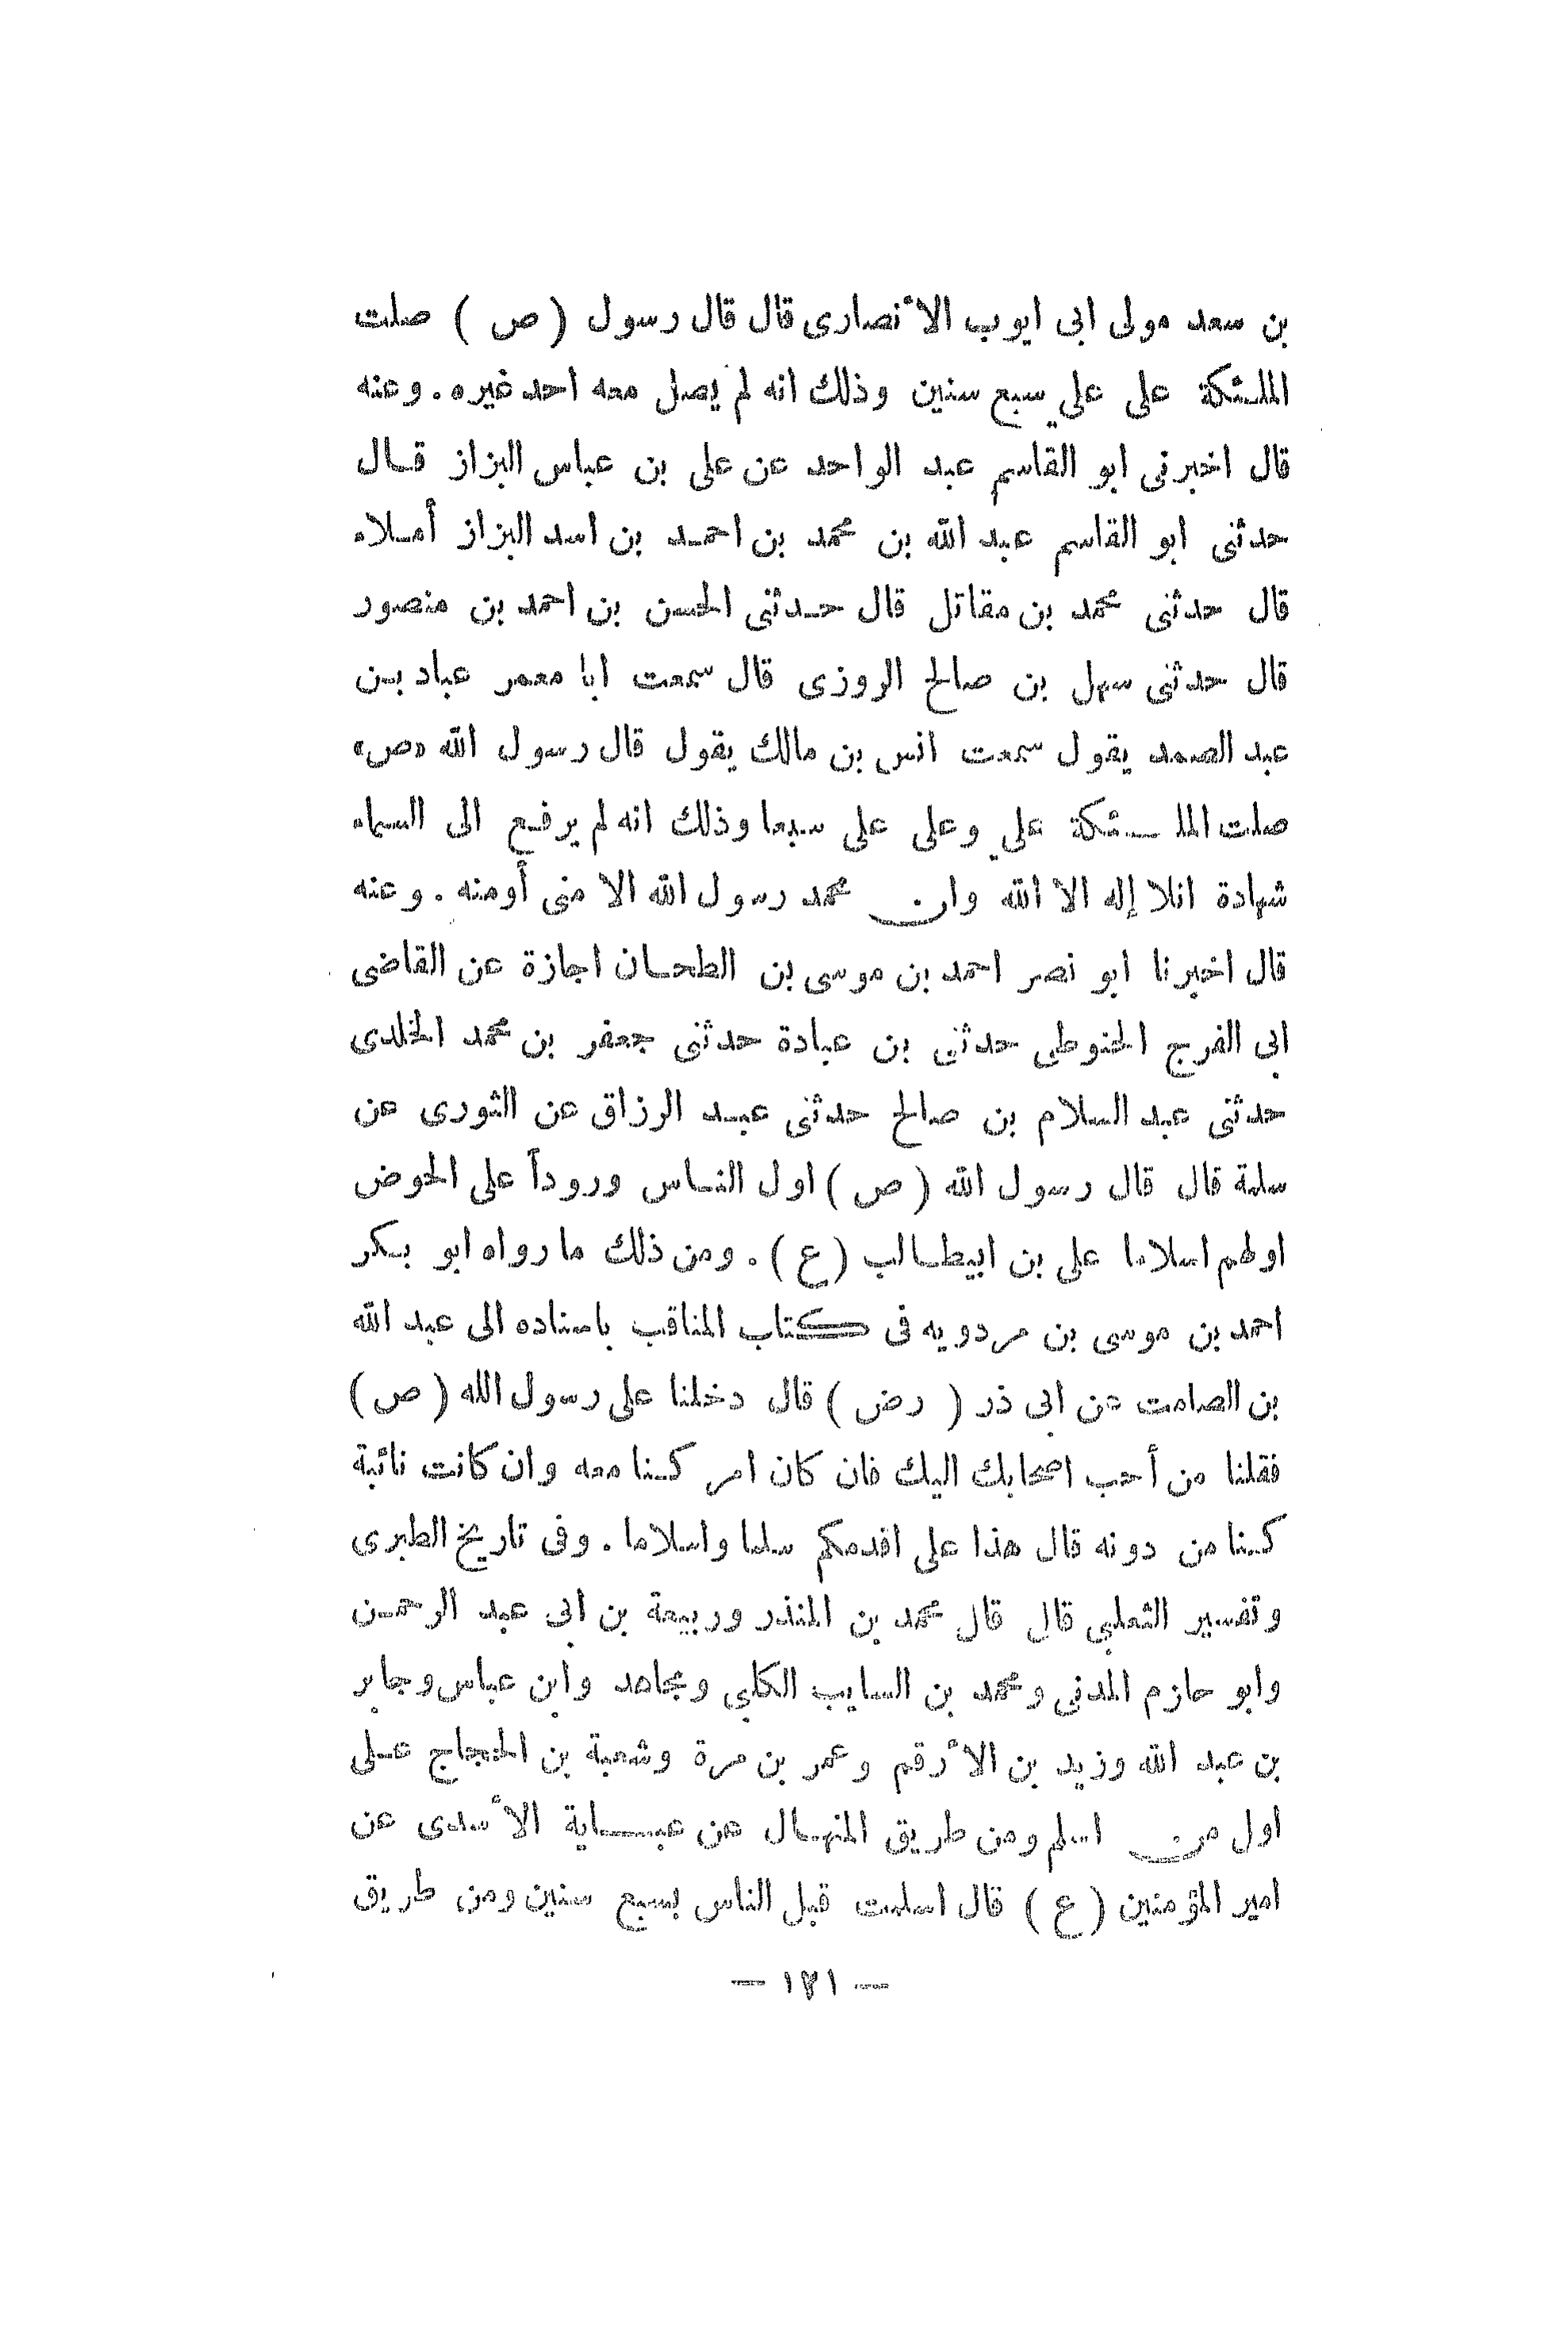 بن سعد مولى ابى ايوب الأنصارى قال قال رسول ( ص ) صلت
الملئكة على علي سبع سنين وذلك انه لم يصل معه احد غيره . وعنه
قال اخبرنى ابو القاسم عبد الواحد عن على بن عباس البزاز قال
حدثنى ابو القاسم عبد الله بن محمد بن احمد بن اسد البزاز أملاء
قال حدثنى محمد بن مقاتل قال حدثنى الحسن بن احمد بن منصور
قال حدثنى سهل بن صالح الروزى قال سمعت ابا معمر عباد بن
عبد الصمد يقول سمعت انس بن مالك يقول قال رسول الله «ص»
صلت الملئكة علي وعلى على سبعا وذلك انه لم يرفع الى السماء
شهادة انلا إله الا الله وان محمد رسول الله الا منى أومنه . وعنه
قال اخبرنا ابو نصر احمد بن موسى بن الطحان اجازة عن القاضى
ابى الفرج الخنوطى حدثني بن عبادة حدثنى جعفر بن محمد الخلدى
حدثنى عبد السلام بن صالح حدثنى عبد الرزاق عن الثورى عن
سلمة قال قال رسول الله ( ص ) اول الناس وروداً على الحوض
اولهم اسلاما على بن ابيطالب ( ع ) . ومن ذلك ما رواه ابو بكر
احمد بن موسى بن مردويه فى كتاب المناقب باسناده الى عبد الله
بن الصامت عن ابى ذر ( رض ) قال دخلنا على رسول الله ( ص )
فقلنا من أحب اصحابك اليك فان كان امر كنا معه وان كانت نائبة
كنا من دونه قال هذا على اقدمكم سلما واسلاما . وفى تاريخ الطبرى
وتفسير الثعلبي قال قال محمد بن المنذر وربيعة بن ابى عبد الرحمن
وابو حازم المدنى ومحمد بن السايب الكلبي ومجاهد وابن عباس وجابر
بن عبد الله وزيد بن الأرقم وعمر بن مرة وشعبة بن الحجاج على
اول من اسلم ومن طريق المنهال عن عباية الأسدى عن
امير المؤمنين ( ع ) قال اسلمت قبل الناس بسبع سنين ومن طريق
— ١٢١ —